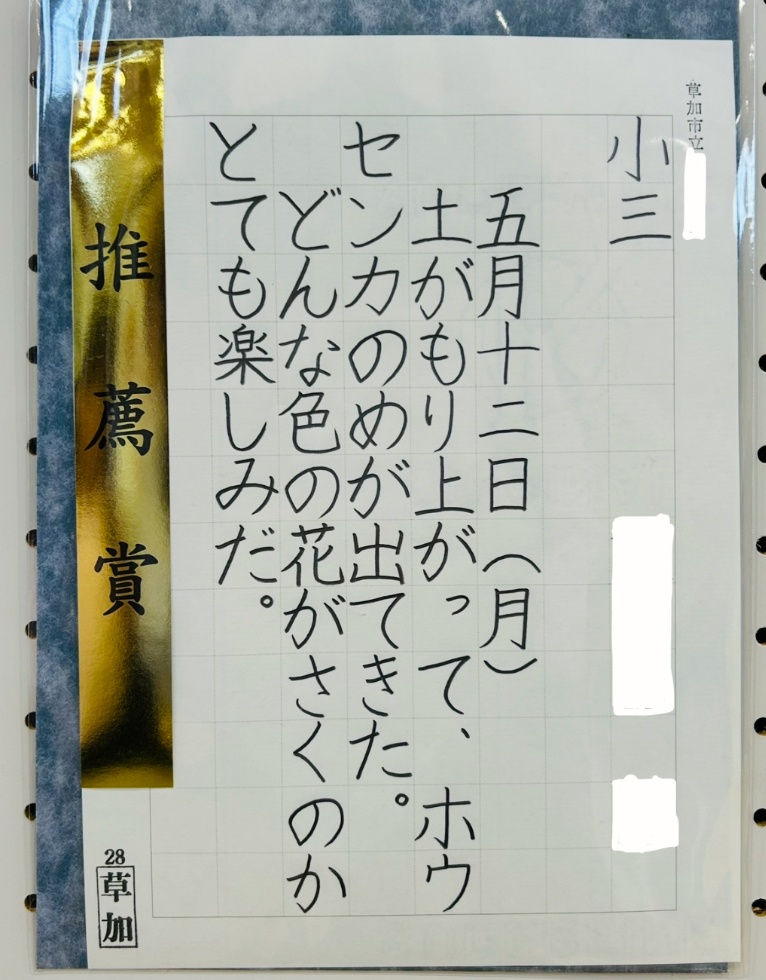 草加市立
小三
五月十二日（月）
土がもり上がって、ホウ
センカのめが出てきた。
どんな色の花がさくのか
とても楽しみだ。
推薦賞
28
草加